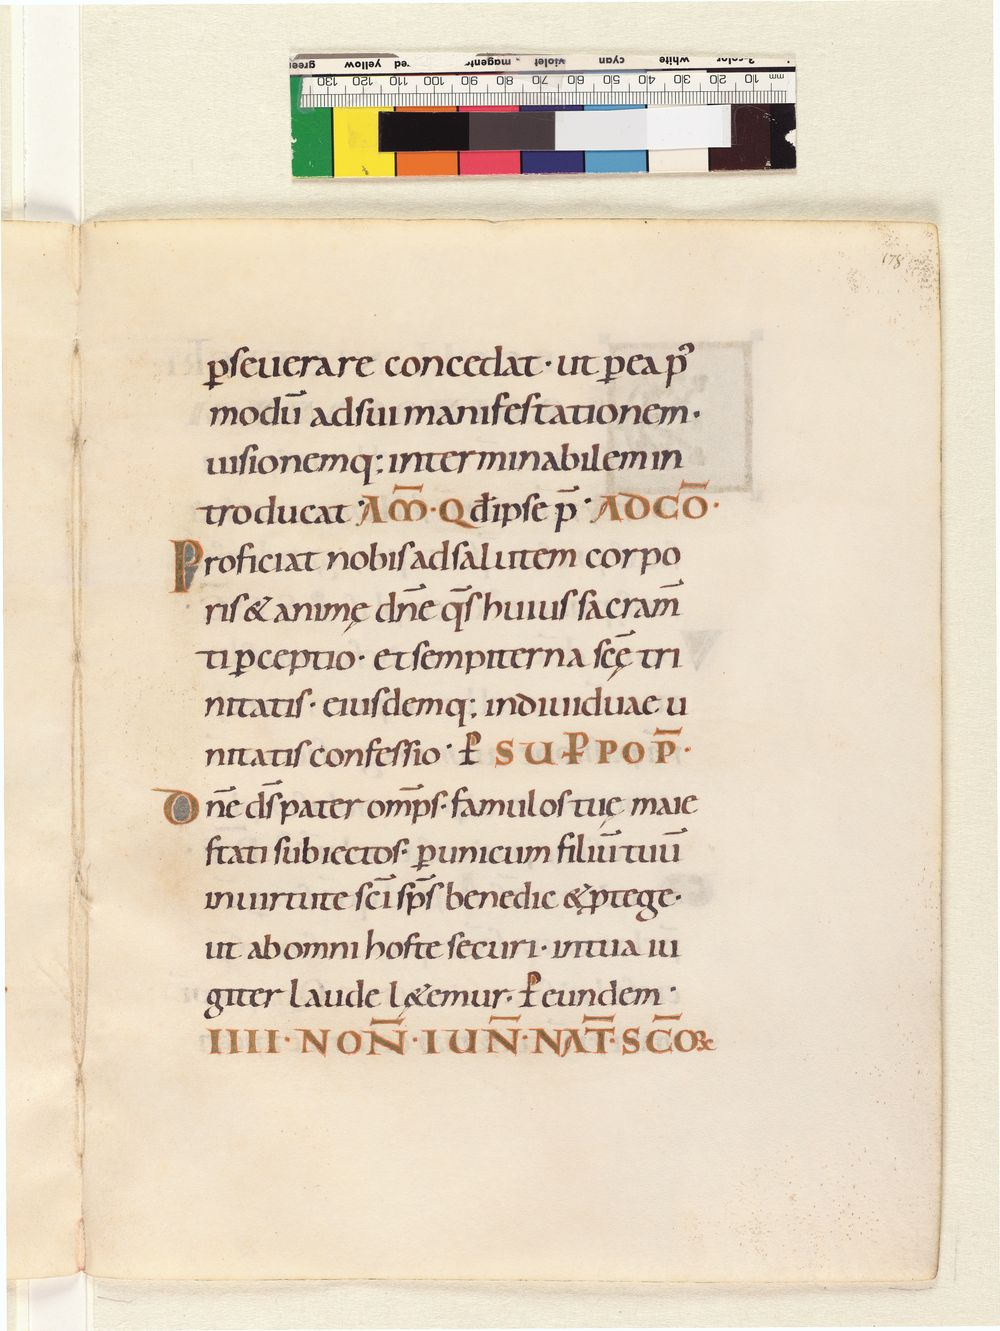 178
ꝑseuerare concedat· ut ꝑea p̉
modū adsui manifestationem·
uisionemq; interminabilem in
troducat· AM̄· Qđipse p̄· ADCŌ·
Proficiat nobis ad salutem corpo
ris & animę dn̄e q̄s huius sacram̄
ti ꝑceptio· et sempiterna scę̄ tri
nitatis· eiusdemq; indiuiduae u
nitatis confessio· ꝑ SUꝐPOP̄·
Dn̄e ds̄ pater omp̄s· famulos tuę maie
stati subiectos· ꝑ unicum filiū tuū
in uirtute sc̄i sp̄s benedic & ꝓtege·
ut ab omni hoste securi· in tua iu
giter laude l&emur· ꝑ eundem·
IIII· NON̄· IUN̄· NAT̄· SC̄OꝜ